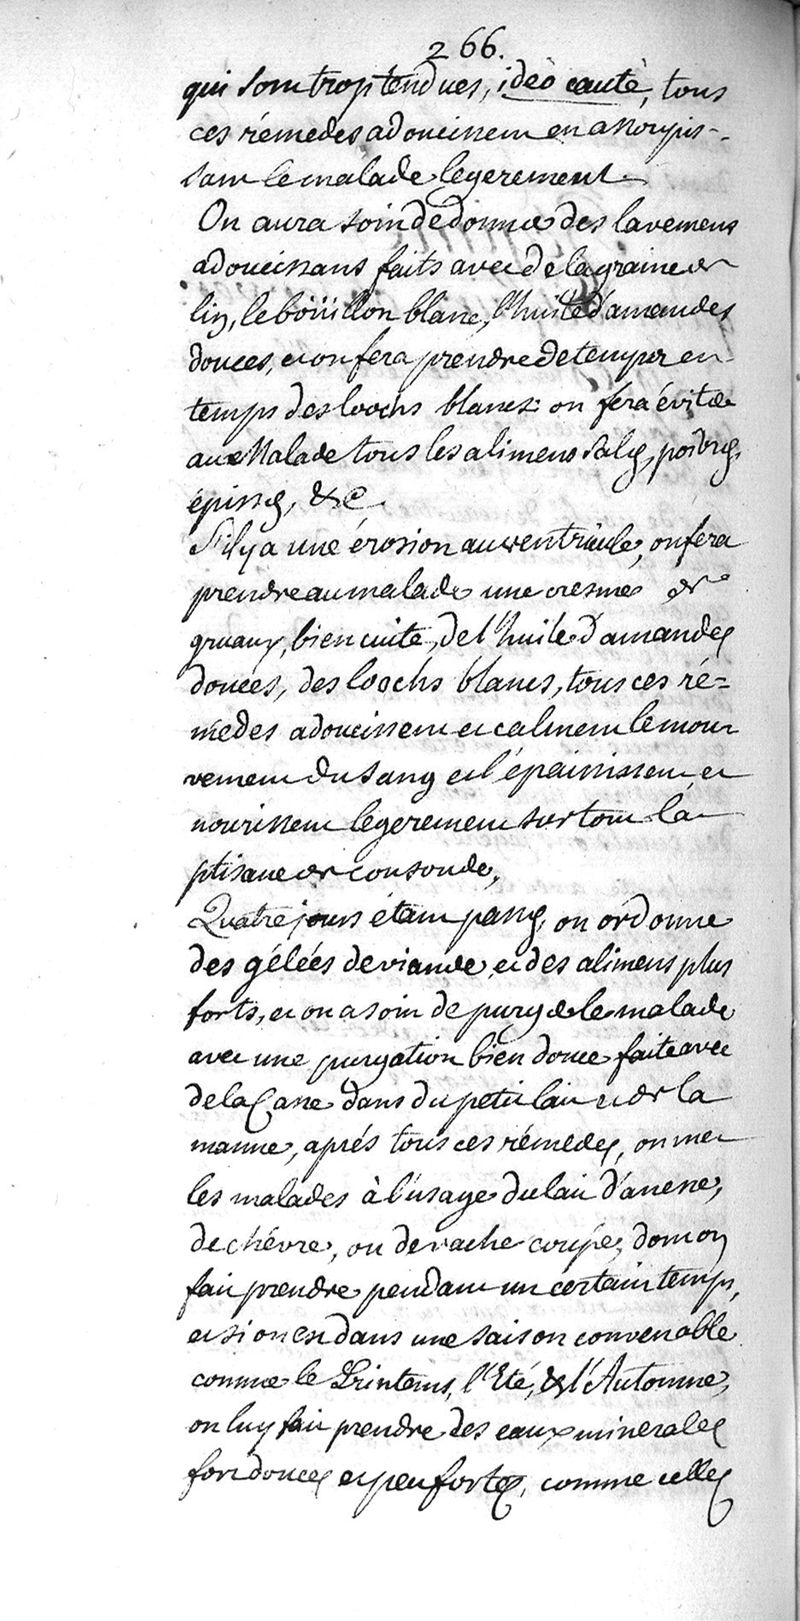 266.
qui sont trop tendues, ideò cautè, tous
ces rémedes adoucissent en assoupis-
sant le malade legerement.
On aura soin de donner des lavemens
adoucissans faits avec de la graine de
lin, le boüillon blanc, l'huile d'amandes
douces, et on fera prendre de temps en
temps des loochs blancs: on féra éviter
aux Malade tous les alimens salés, poivrés,
épissés, &c.
S'il y a une érosion au ventricule, on fera
prendre au malade une cresme de
gruaux, bien cuite, de l'huile d'amandes
douces, des loochs blancs, tous ces ré=
médes adoucissent et calment le mou
vement du sang et l'épaississent et
nourissent legerement sur tout la
ptisane de consoude,
Quatre jours étant passés, on ordonne
des gélées de viande, et des alimens plus
forts, et on a soin de purger le malade
avec une purgation bien douce faite avec
de la Casse dans du petit lait et de la
manne, aprés tous ces rémedes, on met
les malades à l'usage du lait d'anesse,
de chévre, ou de vache coupé, dont on
fait prendre pendant un certain temps,
et si on est dans une saison convenable
comme le Printems, l'Eté, & l'Automne,
on luy fait prendre des eaux minerales
fort douces et peu fortes, comme celles